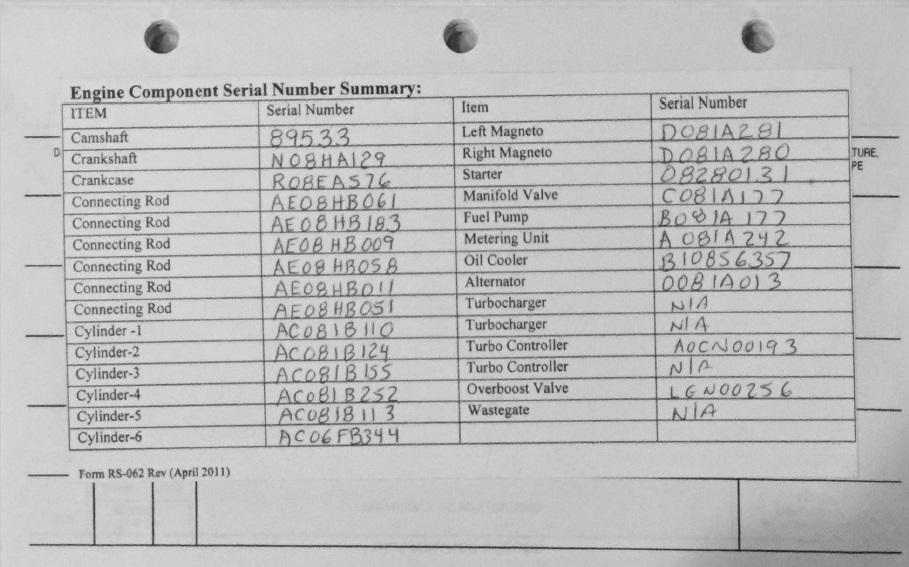 Engine Component Serial Number Summary:
ITEM Serial Number Item Serial Number
Camshaft 89533 Left Magneto D081A281
D Crankshaft N08HA129 Right Magneto D081A280 TURE,
Crankcase R08EA576 Starter 08280131 PE
Connecting Rod AE08HB061 Manifold Valve C081A177
Connecting Rod AE08HB183 Fuel Pump B081A177
Connecting Rod AE08HB009 Metering Unit A081A242
Connecting Rod AE08HB058 Oil Cooler B10856357
Connecting Rod AE08HB011 Alternator 0081A013
Connecting Rod AE08HB051 Turbocharger N/A
Cylinder -1 AC081B110 Turbocharger N/A
Cylinder-2 AC081B124 Turbo Controller A0CN00193
Cylinder-3 AC081B155 Turbo Controller N/A
Cylinder-4 AC081B252 Overboost Valve LGN00256
Cylinder-5 AC081B113 Wastegate N/A
Cylinder-6 AC06FB344
Form RS-062 Rev (April 2011)